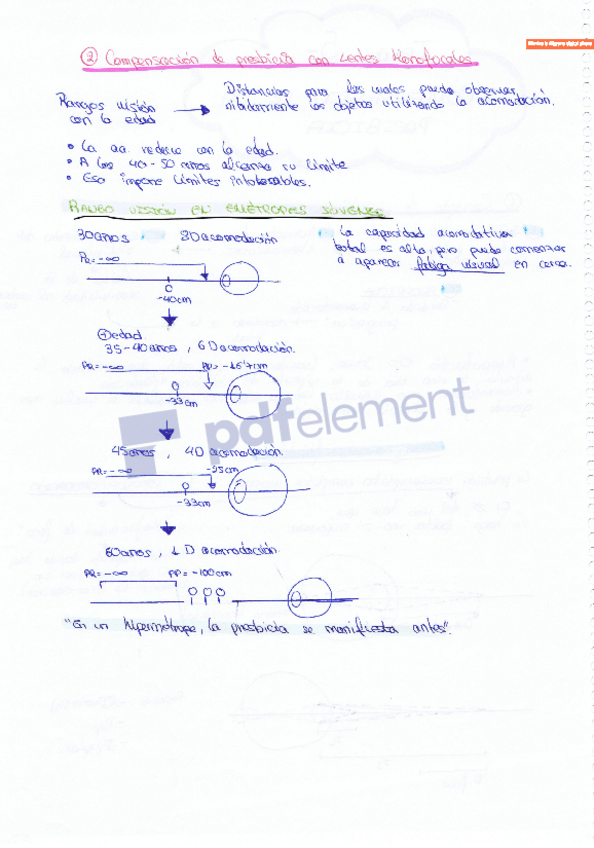 ② Compensación de presbicia con Lentes Monofocales.
Rangos visión → Distancias para las cuales puedo observar
con la edad nítidamente los objetos utilizando la acomodación.
• La aa. reduce con la edad.
• A los 40-50 años alcanza su límite
• Eso impone límites intolerables.
RANGO VISIÓN EN EMÉTROPES JÓVENES
30 años 8D acomodación
La capacidad acomodativa
total es alta, pero puede comenzar
a aparecer fatiga visual en cerca.
PR = -∞
-40cm
⊕ edad
35-40 años, 6D acomodación.
PR = -∞ PP = -16'7cm
-33cm
pdfelement
45 años, 4D acomodación.
PR = -∞ -25cm
-33cm
60 años, 1 D acomodación.
PR = -∞ PP = -100cm
"En un hipermétrope, la presbicia se manifiesta antes".